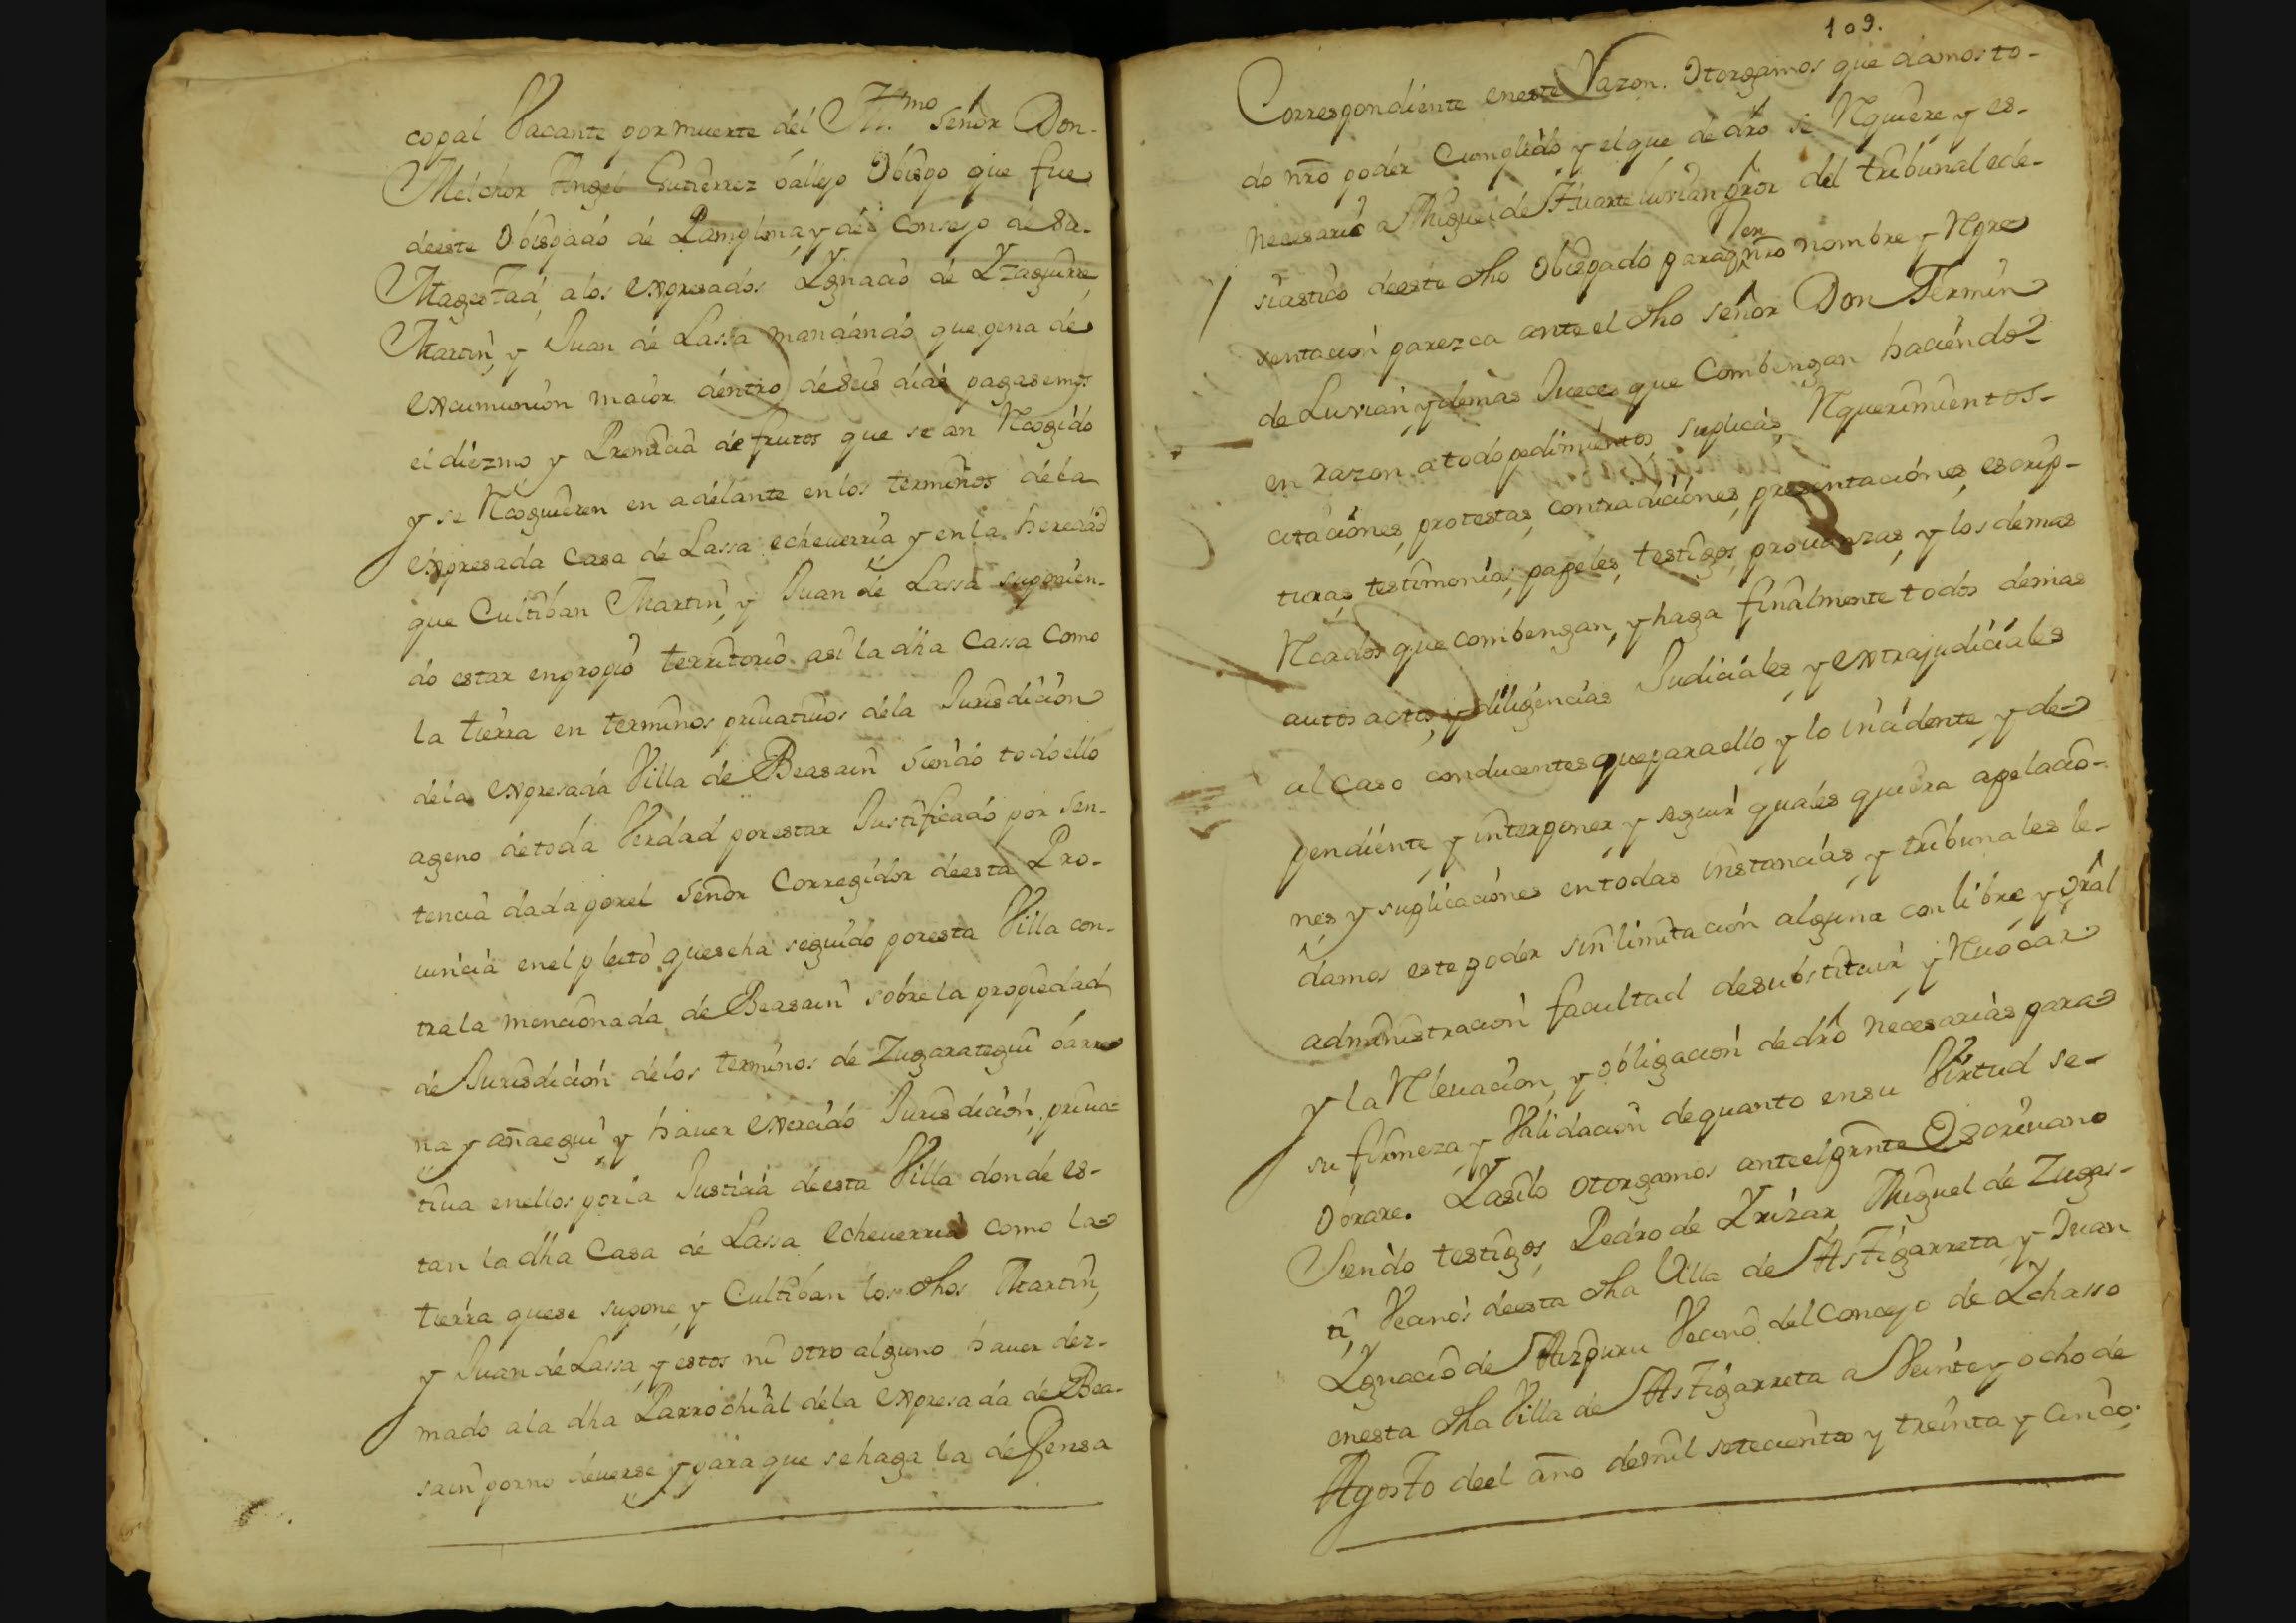 copal Vacante por muerte del Ill.mo Señor Don
Melchor Angel Gutierrez ballejo Obispo que fue
deeste Obispado de Pamplona, y del Consejo de su
Magestad, a los expresados Ygnacio de Yzaguirre
Martin, y Juan de Lassa mandando que pena de
excumunion maior dentro de seis dias pagasemos
el diezmo y Premicia de frutos que se an Recogido
y se Recoguieren en adelante en los terminos de la
expresada Casa de Lassa echeuerria y en la heredad
que Cultiban Martin, y Juan de Lassa suponien-
do estar en propio territorio asi la dha Cassa Como
la tierra en terminos priuatiuos de la Jurisdicion
de la expresada Villa de Beasain siendo todo ello
ageno de toda Verdad por estar Justificado por sen-
tencia dada por el Señor Corregidor deesta Pro-
uincia en el pleito que se ha seguido por esta Villa con-
tra la mencionada de Beasain sobre la propiedad
de Jurisdicion de los terminos de Zugarategui barre
na y añaegui y hauer exercido Jurisdicion priua-
tiua en ellos por la Justicia deesta Villa donde es-
tan la dha Casa de Lassa echeuerria como la
tierra que se supone, y Cultiban los dhos Martin,
y Juan de Lassa, y estos ni otro alguno hauer dez-
mado a la dha Parrochial de la expresada de Bea-
sain por no deuerse y para que se haga la defensa
109.
Correspondiente en este Razon. Otorgamos que damos to-
do nro poder Cumplido y el que de dro se Requiere y es-
necesario a Miguel de Huarte lurian pror del tribunal ecle-
siastico deeste dho Obispado para q en nro nombre y Repre
sentacion parezca ante el dho señor Don Fermin
de Lurian, y demas Jueces que Combengan haciendo
en razon a todo pedimientos, suplicas, Requerimientos-
citaciones, protestas, contradiciones, presentaciones, escrip-
turas, testimonios, papeles, testigos, prouanzas, y los demas
Rcados que combengan, y haga finalmente todos demas
autos actos, y diligencias Judiciales y extrajudiciales
al caso conducentes que para ello y lo incidente, y de-
pendiente y interponer y seguir quales quiera apelacio-
nes y suplicaciones en todas instancias y tribunales le-
damos este poder sin limitacion alguna con libre y gral
administracion facultad de substituir y Reuocar
y la Releuacion, y obligacion de dro necesarias para
su firmeza y Validacion de quanto en su Virtud se-
obrare. Y asi lo otorgamos ante el prnte Escriuano
Siendo testigos, Pedro de Yrizar Miguel de Zugas-
ti, Vecinos deesta dha Villa de Astigarreta, y Juan
Ygnacio de Aizpuru Vecino del Concejo de Ychasso
en esta dha Villa de Astigarreta a Veinte y ocho de
Agosto deel año de mil setecientos y treinta y cinco.